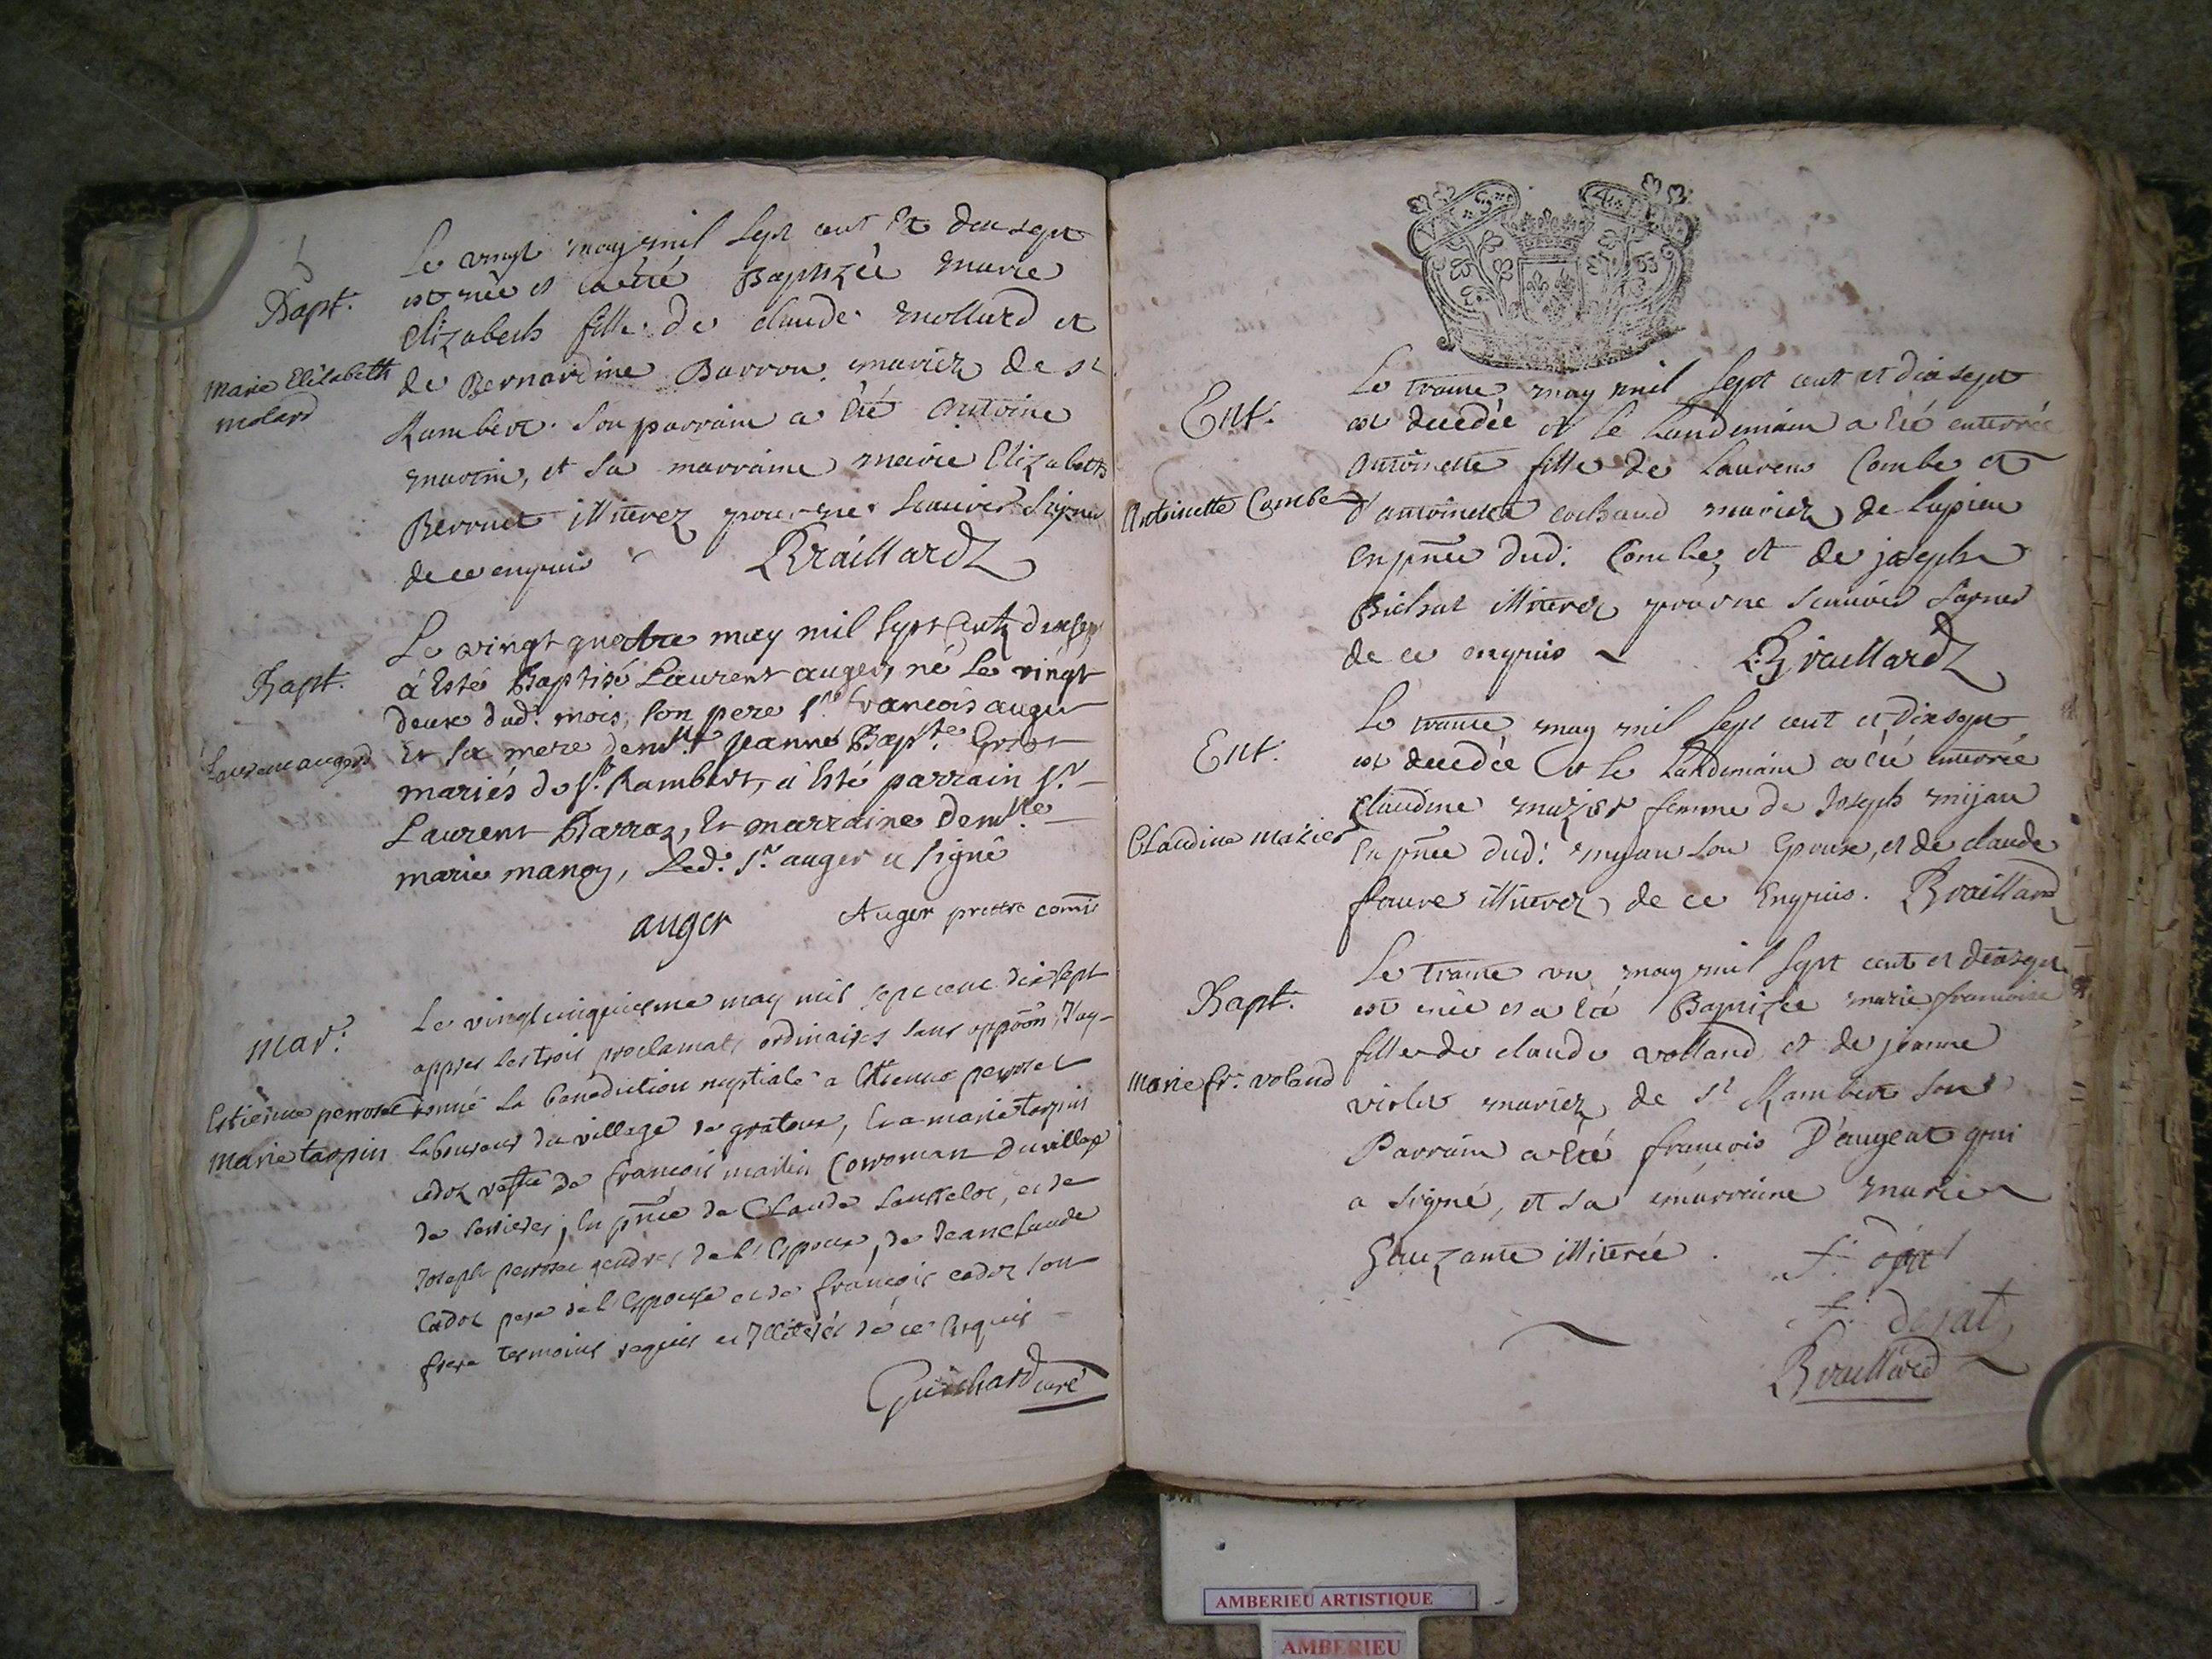 Bapt.
Marie Elisabeth
molard
Le vingt may mil sept cent et dix sept
est née et a été Baptizée marie
Elizabeth fille de claude mollard et
de Bernardine Barron mariez de st
Rambert. Son parrain a été Antoine
martin, et sa marraine marie Elizabeth
illiterez pour ne scauoir signer
de ce enquis Braillard
Bapt.
Laurent auger
Le vingt quatre may mil sept cent dix sept
à esté Baptisé Laurent auger, né le vingt
deux dud. mois, son pere sr françois auger
Et sa mere demlle jeanne Bapte
mariés de st. Rambert, à esté parrain sr.
Laurent Barraz, Et marraine demlle
marie mangy, Led. sr. auger a signé
auger Auger prettre comis
mar.
Estienne perrozet
Marie tarpin
Le vingt cinquiesme may mil sept cent dix sept
appres les trois proclamats ordinaires sans oppoõn, J'ay
donné la benediction nuptiale a Estienne perrozet
laboureur du village de gratoux, Et a marie tarpin
cadoz vefue de françois martin Coroman du village
de serrieres, En pnce de Claude et de
Joseph perrozet gendres de l'Espoux, de Jeanclaude
Cadoz pere de l'Espouse et de françois cadoz son
frere tesmoins requis et Illiterés de ce Enquis
Guichard curé
Ent.
Antoinette Combe
Le trante may mil sept cent et dix sept
est decedée et le landemain a été enterrée
Antoinette fille de Laurens Combe et
d'antoinette cochand mariez de Lupieu
en pnce dud. Combe, et de joseph
Bichat illiterez pour ne scauoir signer
de ce enquis Braillard
Ent.
Claudine Mazier
Le trante may mil sept cent et dix sept
est decedée et le landemain a été enterrée
Claudine mazier femme de Joseph mijan
En pnce dud. mijan son Epoux, et de claude
faure illiterez de ce Enquis. Braillard
Bapt.
Marie fr. voland
Le trante un may mil sept cent et dix sept
est née et a été Baptizée marie francoise
fille de claude volland et de jeanne
violet mariez de st Rambert son
Parrain a été françois D'angeat qui
a signé, et sa marraine marie
illiterée.
Braillard
AMBERIEU ARTISTIQUE
AMBERIEU